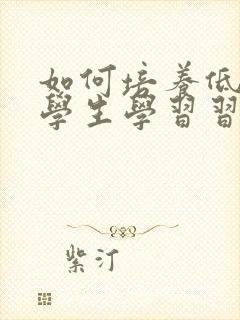 如何培養低
學生學習習
紫汀